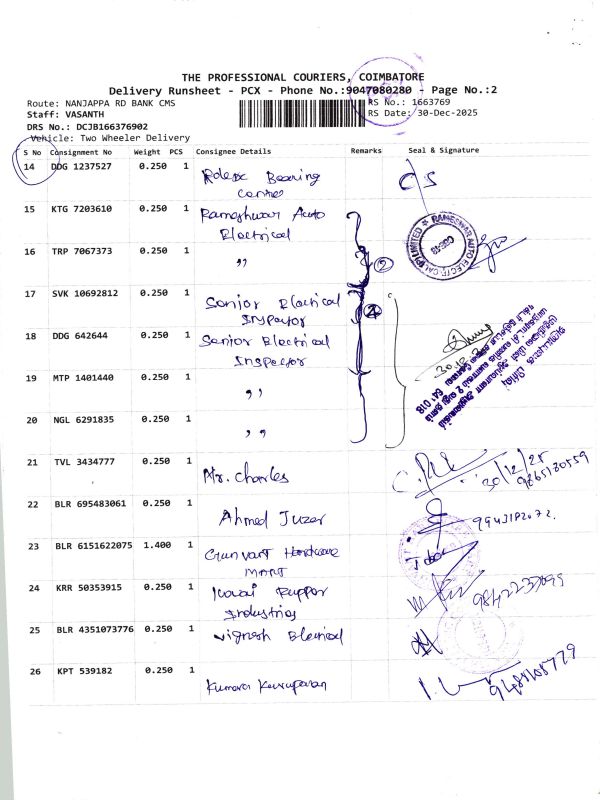 THE PROFESSIONAL COURIERS, COIMBATORE
Delivery Runsheet - PCX - Phone No.:9047080280 - Page No.:2
Route: NANJAPPA RD BANK CMS
RS No.: 1663769
Staff: VASANTH
RS Date: 30-Dec-2025
DRS No.: DCJB166376902
Vehicle: Two Wheeler Delivery
S No Consignment No Weight PCS Consignee Details Remarks Seal & Signature
14 DDG 1237527 0.250 1 Rolex Bearing
Centre
CS
15 KTG 7203610 0.250 1 Rameshwar Auto
Electrical
16 TRP 7067373 0.250 1 ,,
②
17 SVK 10692812 0.250 1 Senior Electrical
Inspector
④
18 DDG 642644 0.250 1 Senior Electrical
Inspector
19 MTP 1401440 0.250 1 ,,
641 018
20 NGL 6291835 0.250 1 ,,
21 TVL 3434777 0.250 1 Mr. Charles
30/12/25
9865130559
22 BLR 695483061 0.250 1 Ahmed Juzer
23 BLR 6151622075 1.400 1 Gunvant Hardware
Mart
24 KRR 50353915 0.250 1 Kovai Rubber
Industries
25 BLR 4351073776 0.250 1 Vignesh Electrical
26 KPT 539182 0.250 1 Kumara